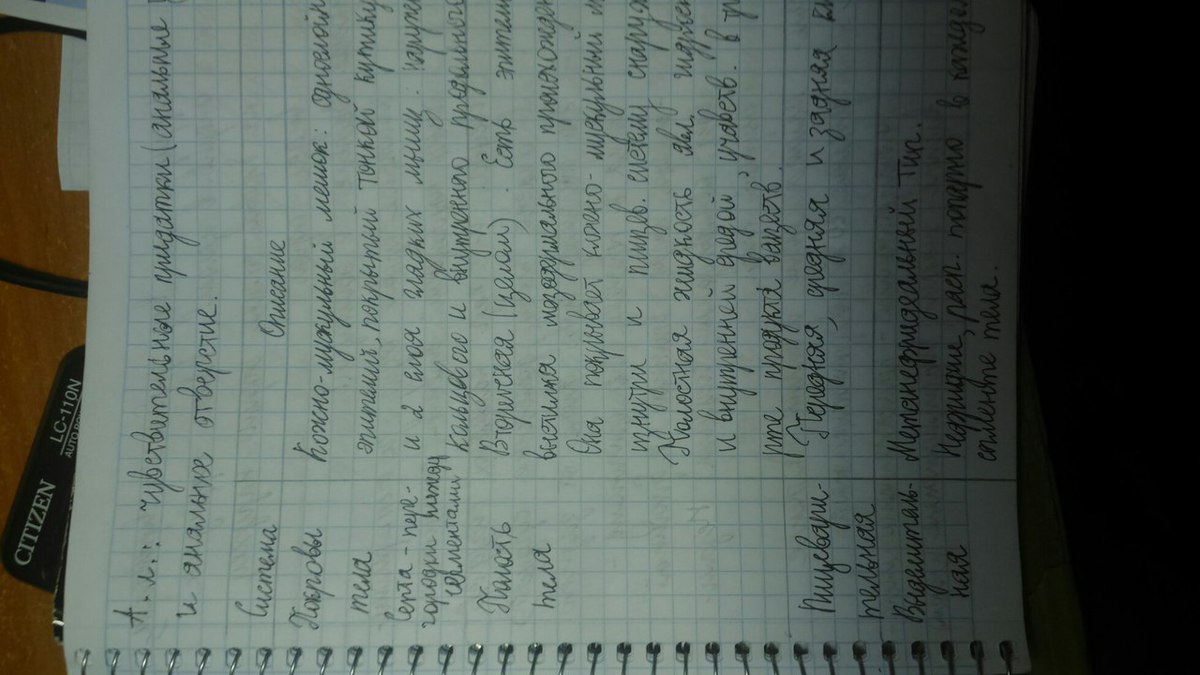 А.л.: чувствительные придатки (анальные
и анальное отверстие.
Система
Описание
Покровы
тела
Кожно-мускульный мешок: однослойн
эпителий, покрытый тонкой кутику
и 2 слоя гладких мышц. наружн
кольцевого и внутреннего продольного
Септа - пере-
городки между
сегментами
Полость
тела
Вторичная (целом). Есть эпители
выстилка мезодермального происхожден
Она покрывает кожно-мускульный
изнутри и пищев. систему снаруж
Полостная жидкость явл. гидроск
и внутренней средой, участв. в тр
рте продуктв веществ.
Пищевари-
тельная
Передняя, средняя и задняя ки
Выделитель-
ная
Метанефридеальный тип.
Нефридии, расп. попарно в каждом
сегменте тела.
CITIZEN
LC-110N